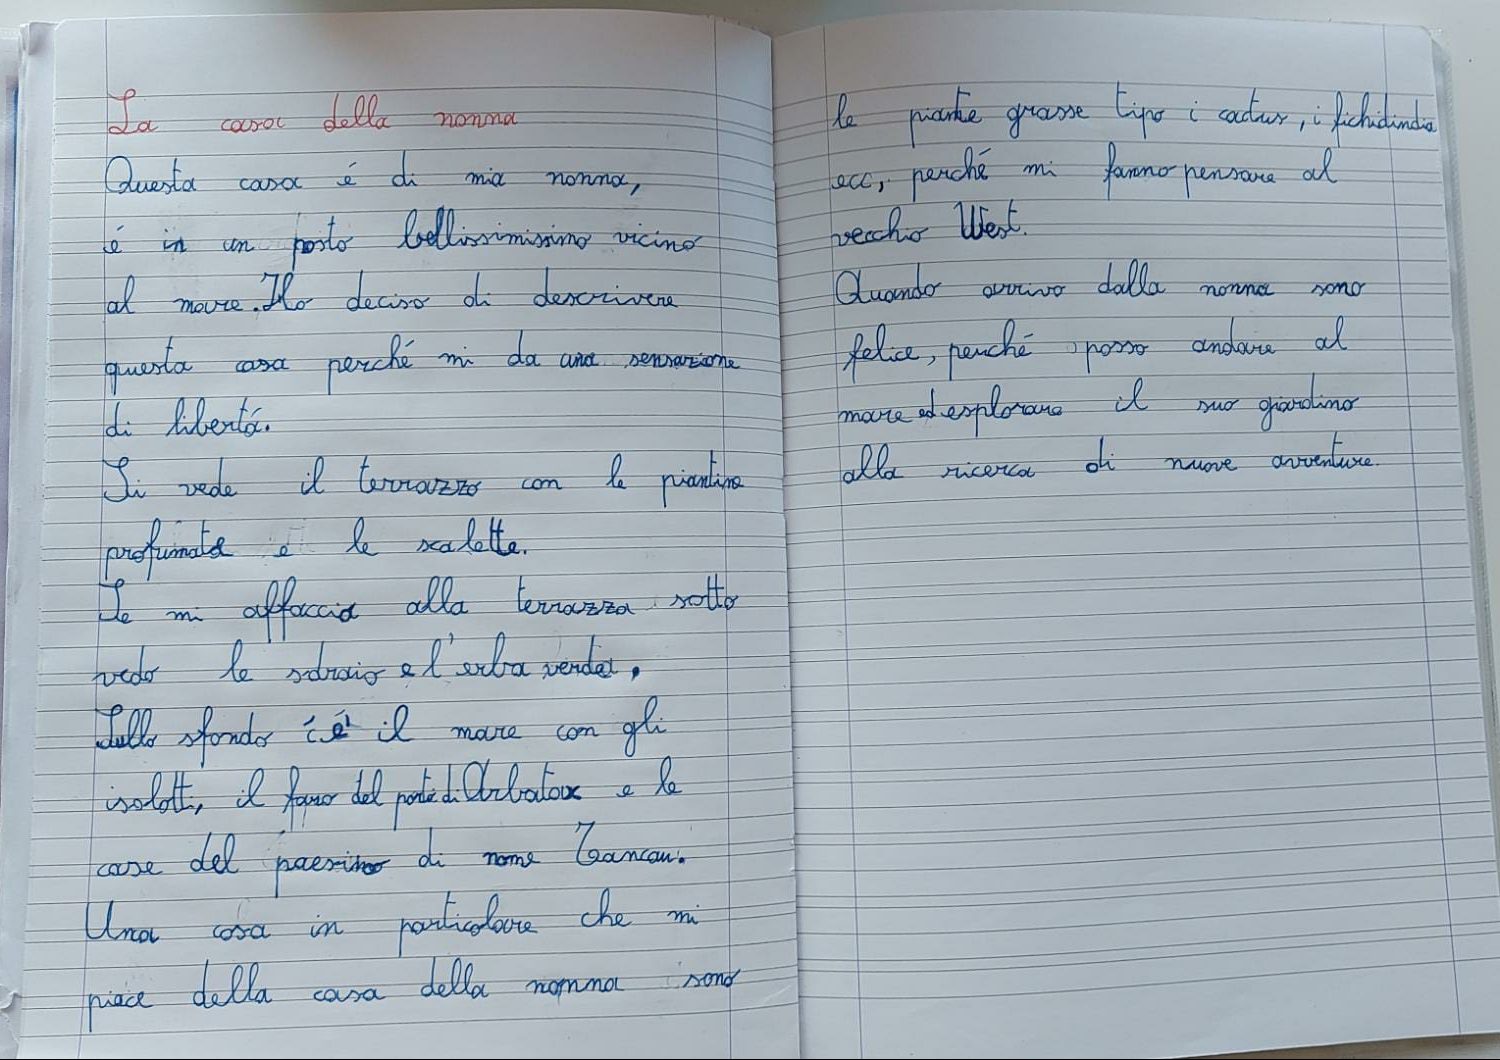 La casa della nonna
Questa casa é di mia nonna,
é in un posto bellissimissimo vicino
al mare. Ho deciso di descrivere
questa casa perché mi da una sensazione
di libertá.
Si vede il terrazzo con le piantine
profumate e le scalette.
Se mi affaccio alla terrazza sotto
vedo le sdraio e l'erba verde,
Sullo sfondo c'é il mare con gli
isolotti, il faro del porto di Arbatax e le
case del paesino di nome
Una cosa in particolare che mi
piace della casa della nonna sono
le piante grasse tipo i cactus, i fichidindia
ecc, perché mi fanno pensare al
vecchio West.
Quando arrivo dalla nonna sono
felice, perché posso andare al
mare ed esplorare il suo giardino
alla ricerca di nuove avventure.